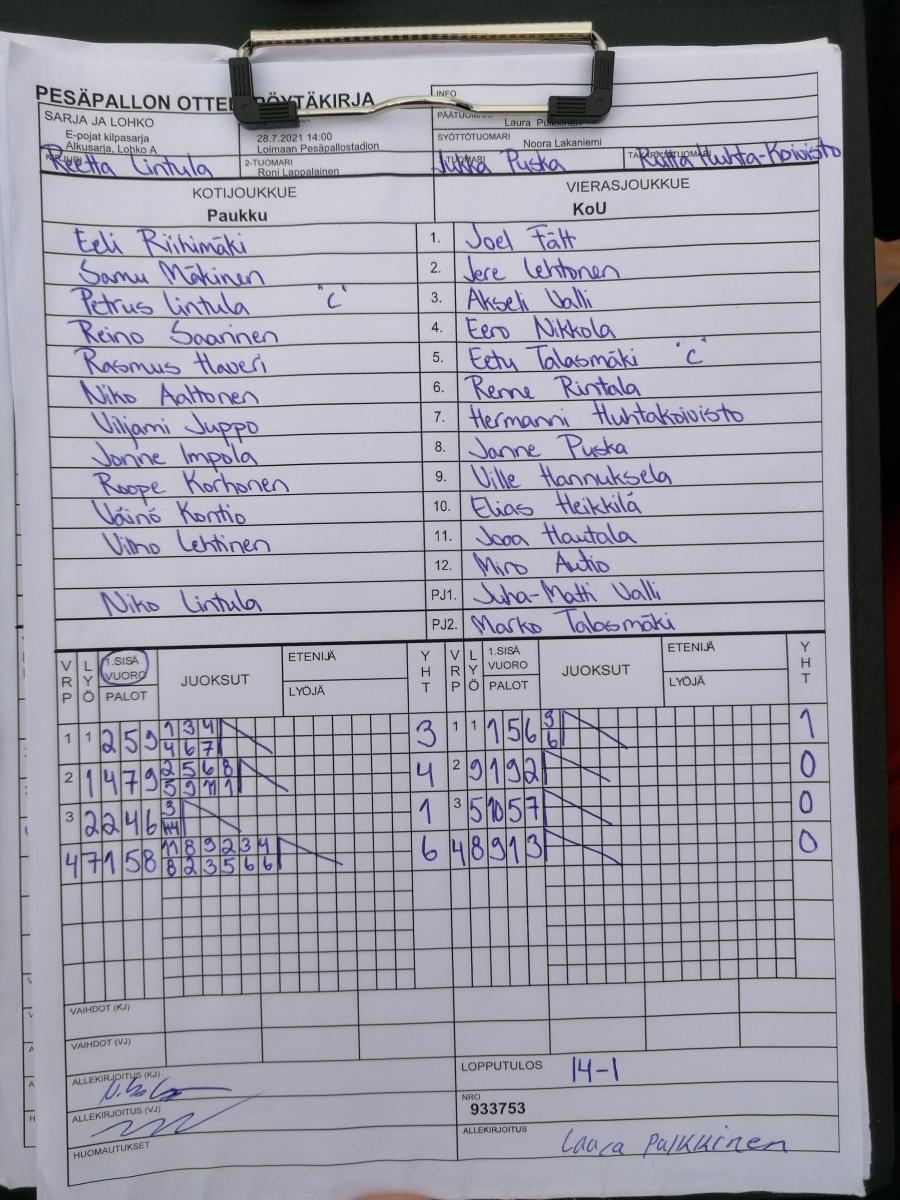 PESÄPALLON OTTE PÖYTÄKIRJA
INFO
SARJA JA LOHKO
E-pojat kilpasarja
Alkusarja, Lohko A
28.7.2021 14:00
Loimaan Pesäpallostadion
PÄÄTUOMARI
Laura Pulkkinen
SYÖTTÖTUOMARI
Noora Lakaniemi
KIRJURI
Reetta Lintula
2-TUOMARI
Roni Lappalainen
Jukka Puska
Riitta Huhta-Koivisto
KOTIJOUKKUE
Paukku
VIERASJOUKKUE
KoU
Eeli Riihimäki 1. Joel Fält
Samu Mäkinen 2. Jere Lehtonen
Petrus Lintula "C" 3. Akseli Valli
Reino Saarinen 4. Eero Nikkola
Rasmus Haveri 5. Eetu Talasmäki "C"
Niko Aaltonen 6. Renne Rintala
Viljami Juppo 7. Hermanni Huhtakoivisto
Jonne Impola 8. Janne Puska
Roope Korhonen 9. Ville Hannuksela
Väinö Kontio 10. Elias Heikkilä
Vilho Lehtinen 11. Jooa Hautala
12. Miro Autio
Niko Lintula PJ1. Juha-Matti Valli
PJ2. Marko Talasmäki
VRP LYÖ 1.SISÄ VUORO PALOT JUOKSUT ETENIJÄ LYÖJÄ YHT VRP LYÖ 1.SISÄ VUORO PALOT JUOKSUT ETENIJÄ LYÖJÄ YHT
1 1 2 5 9 1 3 4 3 1 1 1 5 6 3 1
4 6 7 6
2 1 4 7 9 2 5 6 8 4 2 9 1 9 2 0
5 9 11 1
3 2 2 4 6 3 1 3 5 10 5 7 0
4 7 1 5 8 11 8 9 2 3 4 6 4 8 9 1 3 0
8 2 3 5 6 6
VAIHDOT (KJ)
VAIHDOT (VJ)
ALLEKIRJOITUS (KJ)
LOPPUTULOS 14-1
ALLEKIRJOITUS (VJ)
NRO
933753
HUOMAUTUKSET
ALLEKIRJOITUS
Laura Pulkkinen